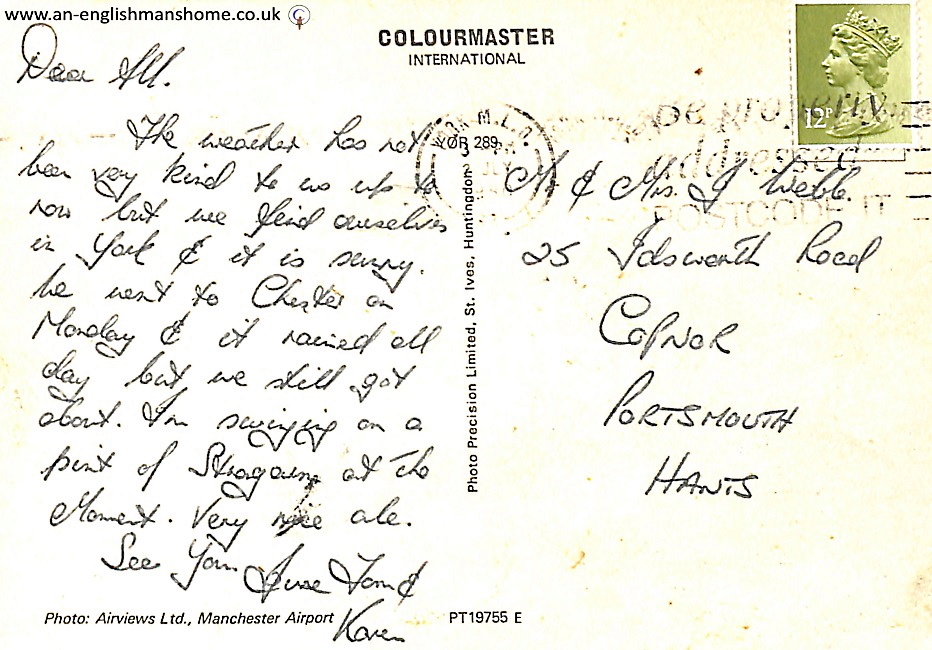 www.an-englishmanshome.co.uk
COLOURMASTER
INTERNATIONAL
Dear All.
The weather has not
been very kind to us up to
now but we find ourselves
in York & it is sunny.
We went to Chester on
Monday & it rained all
day but we still got
about. I'm swinging on a
pint of at the
Moment. Very nice ale.
See You
June Tom &
Karen
Photo: Airviews Ltd., Manchester Airport
PT19755 E
Photo Precision Limited, St. Ives, Huntingdon
YOR 289
12P
Be properly
addressed
POSTCODE IT
Mr & Mrs J Webb.
25 Idsworth Road
COPNOR
PORTSMOUTH
HANTS